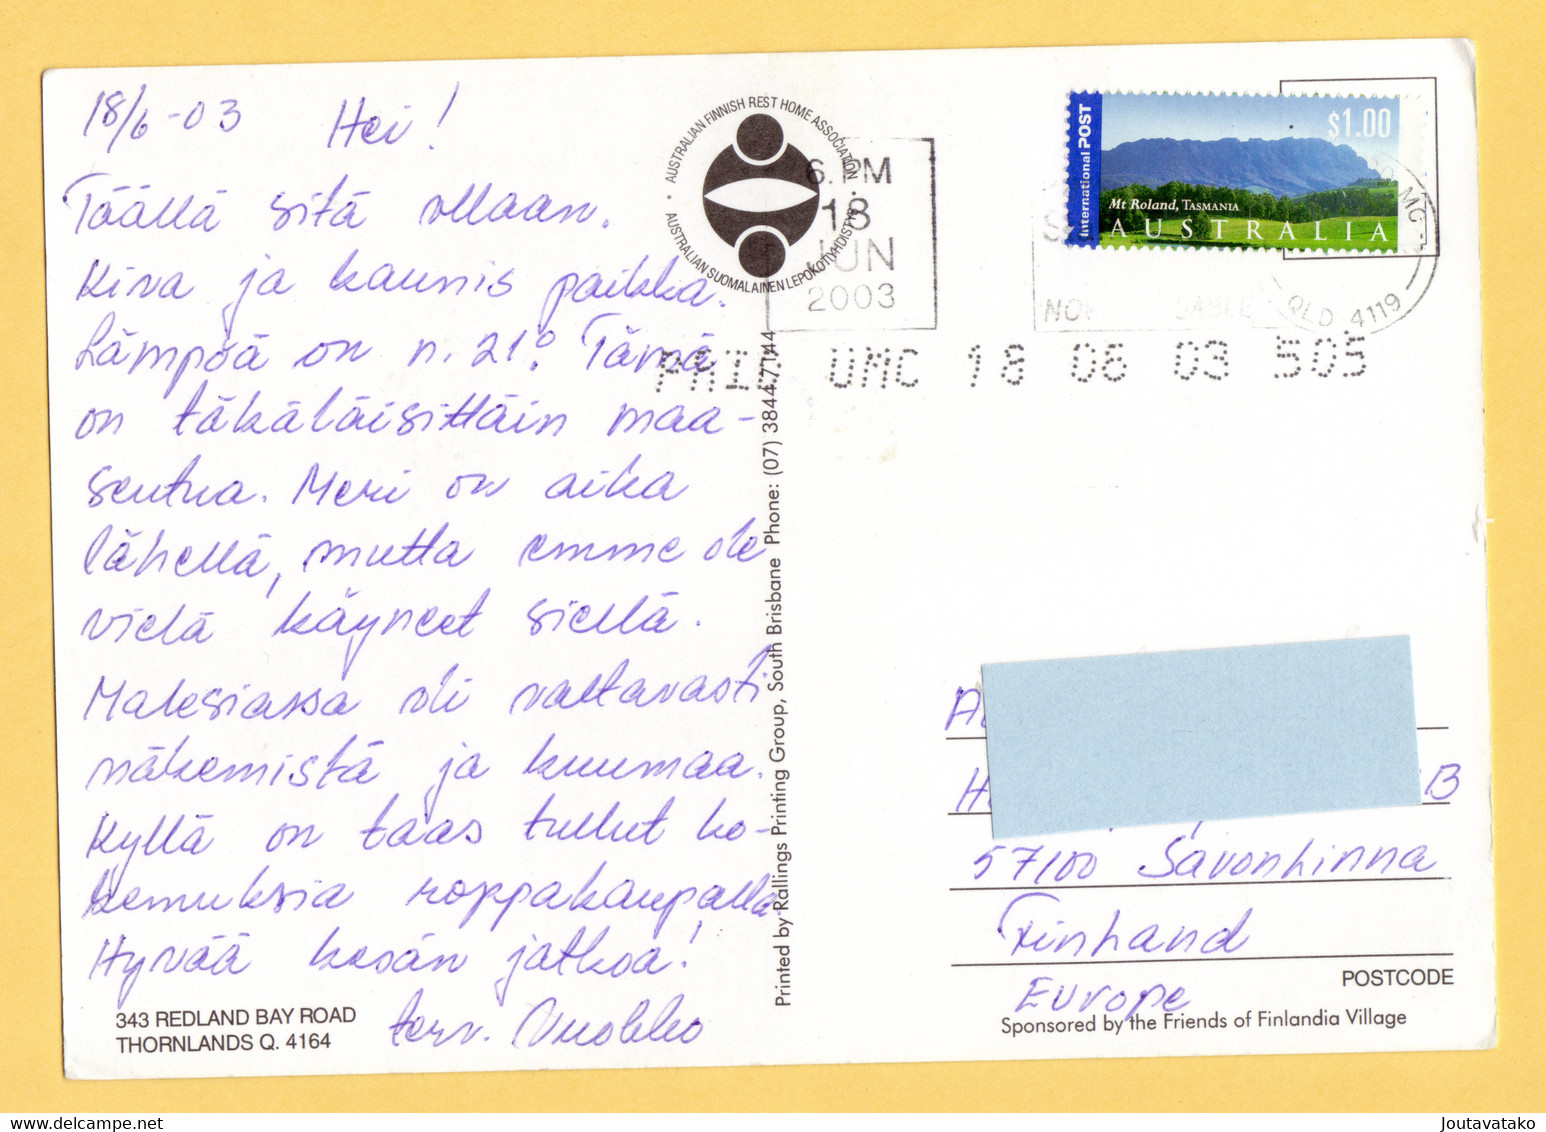 18/6-03 Hei!
Täällä sitä ollaan.
Kiva ja kaunis paikka.
Lämpöä on n. 21°. Tämä
on täkäläisittäin maa-
seutua. Meri on aika
lähellä, mutta emme ole
vielä käyneet siellä.
Malesiassa oli valtavasti
näkemistä ja kuumaa.
Kyllä on taas tullut ko-
kemuksia roppakaupalla.
Hyvää kesän jatkoa!
terv. Vuokko
343 REDLAND BAY ROAD
THORNLANDS Q. 4164
• AUSTRALIAN FINNISH REST HOME ASSOCIATION •
AUSTRALIAN SUOMALAINEN LEPOKOTIYHDISTYS
6. PM
18
JUN
2003
PAID UMC 18 06 03 505
Printed by Rallings Printing Group, South Brisbane Phone: (07) 3844 7144
International POST
$1.00
Mt Roland, TASMANIA
AUSTRALIA
MC
QLD 4119
B
57100 Savonlinna
Finland
Europe
POSTCODE
Sponsored by the Friends of Finlandia Village
Joutavatako